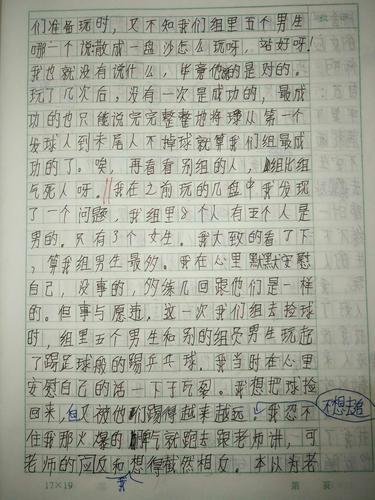 们准备玩时，又不知我们组里五个男生
哪一个说散成一盘沙怎么玩呀，站好呀！
我也就没有说什么，毕竟他的是对的。
玩了几次后，没有一次是成功的，最成
功的也只能说完完整整地将球从第一个
发球人到末尾人不掉球就算我们组最成
功的了。唉，再看看别组的人，组比组
气死人呀。我在之前玩的几盘中我发现
了一个问题，我组里8个人有五个人是
男的。只有3个女生。我大致的看了下
，算我组男生最多。我在心里默默安慰
自己，没事的，多练几回跟他们是一样
的。但事与愿违，这一次我们组去捡球
时，组里五个男生和别的组员男生玩起
了踢足球般的踢乒乓球。我当时在心里
安慰自己的话一下子瓦裂。我想把球捡
回来，但又被他们踢得越来越远！我忍不
不想去追
住我那火爆的脾气就跑去跟老师讲，可
老师的回应和想得截然相反。本以为老
我
17×19 第 页